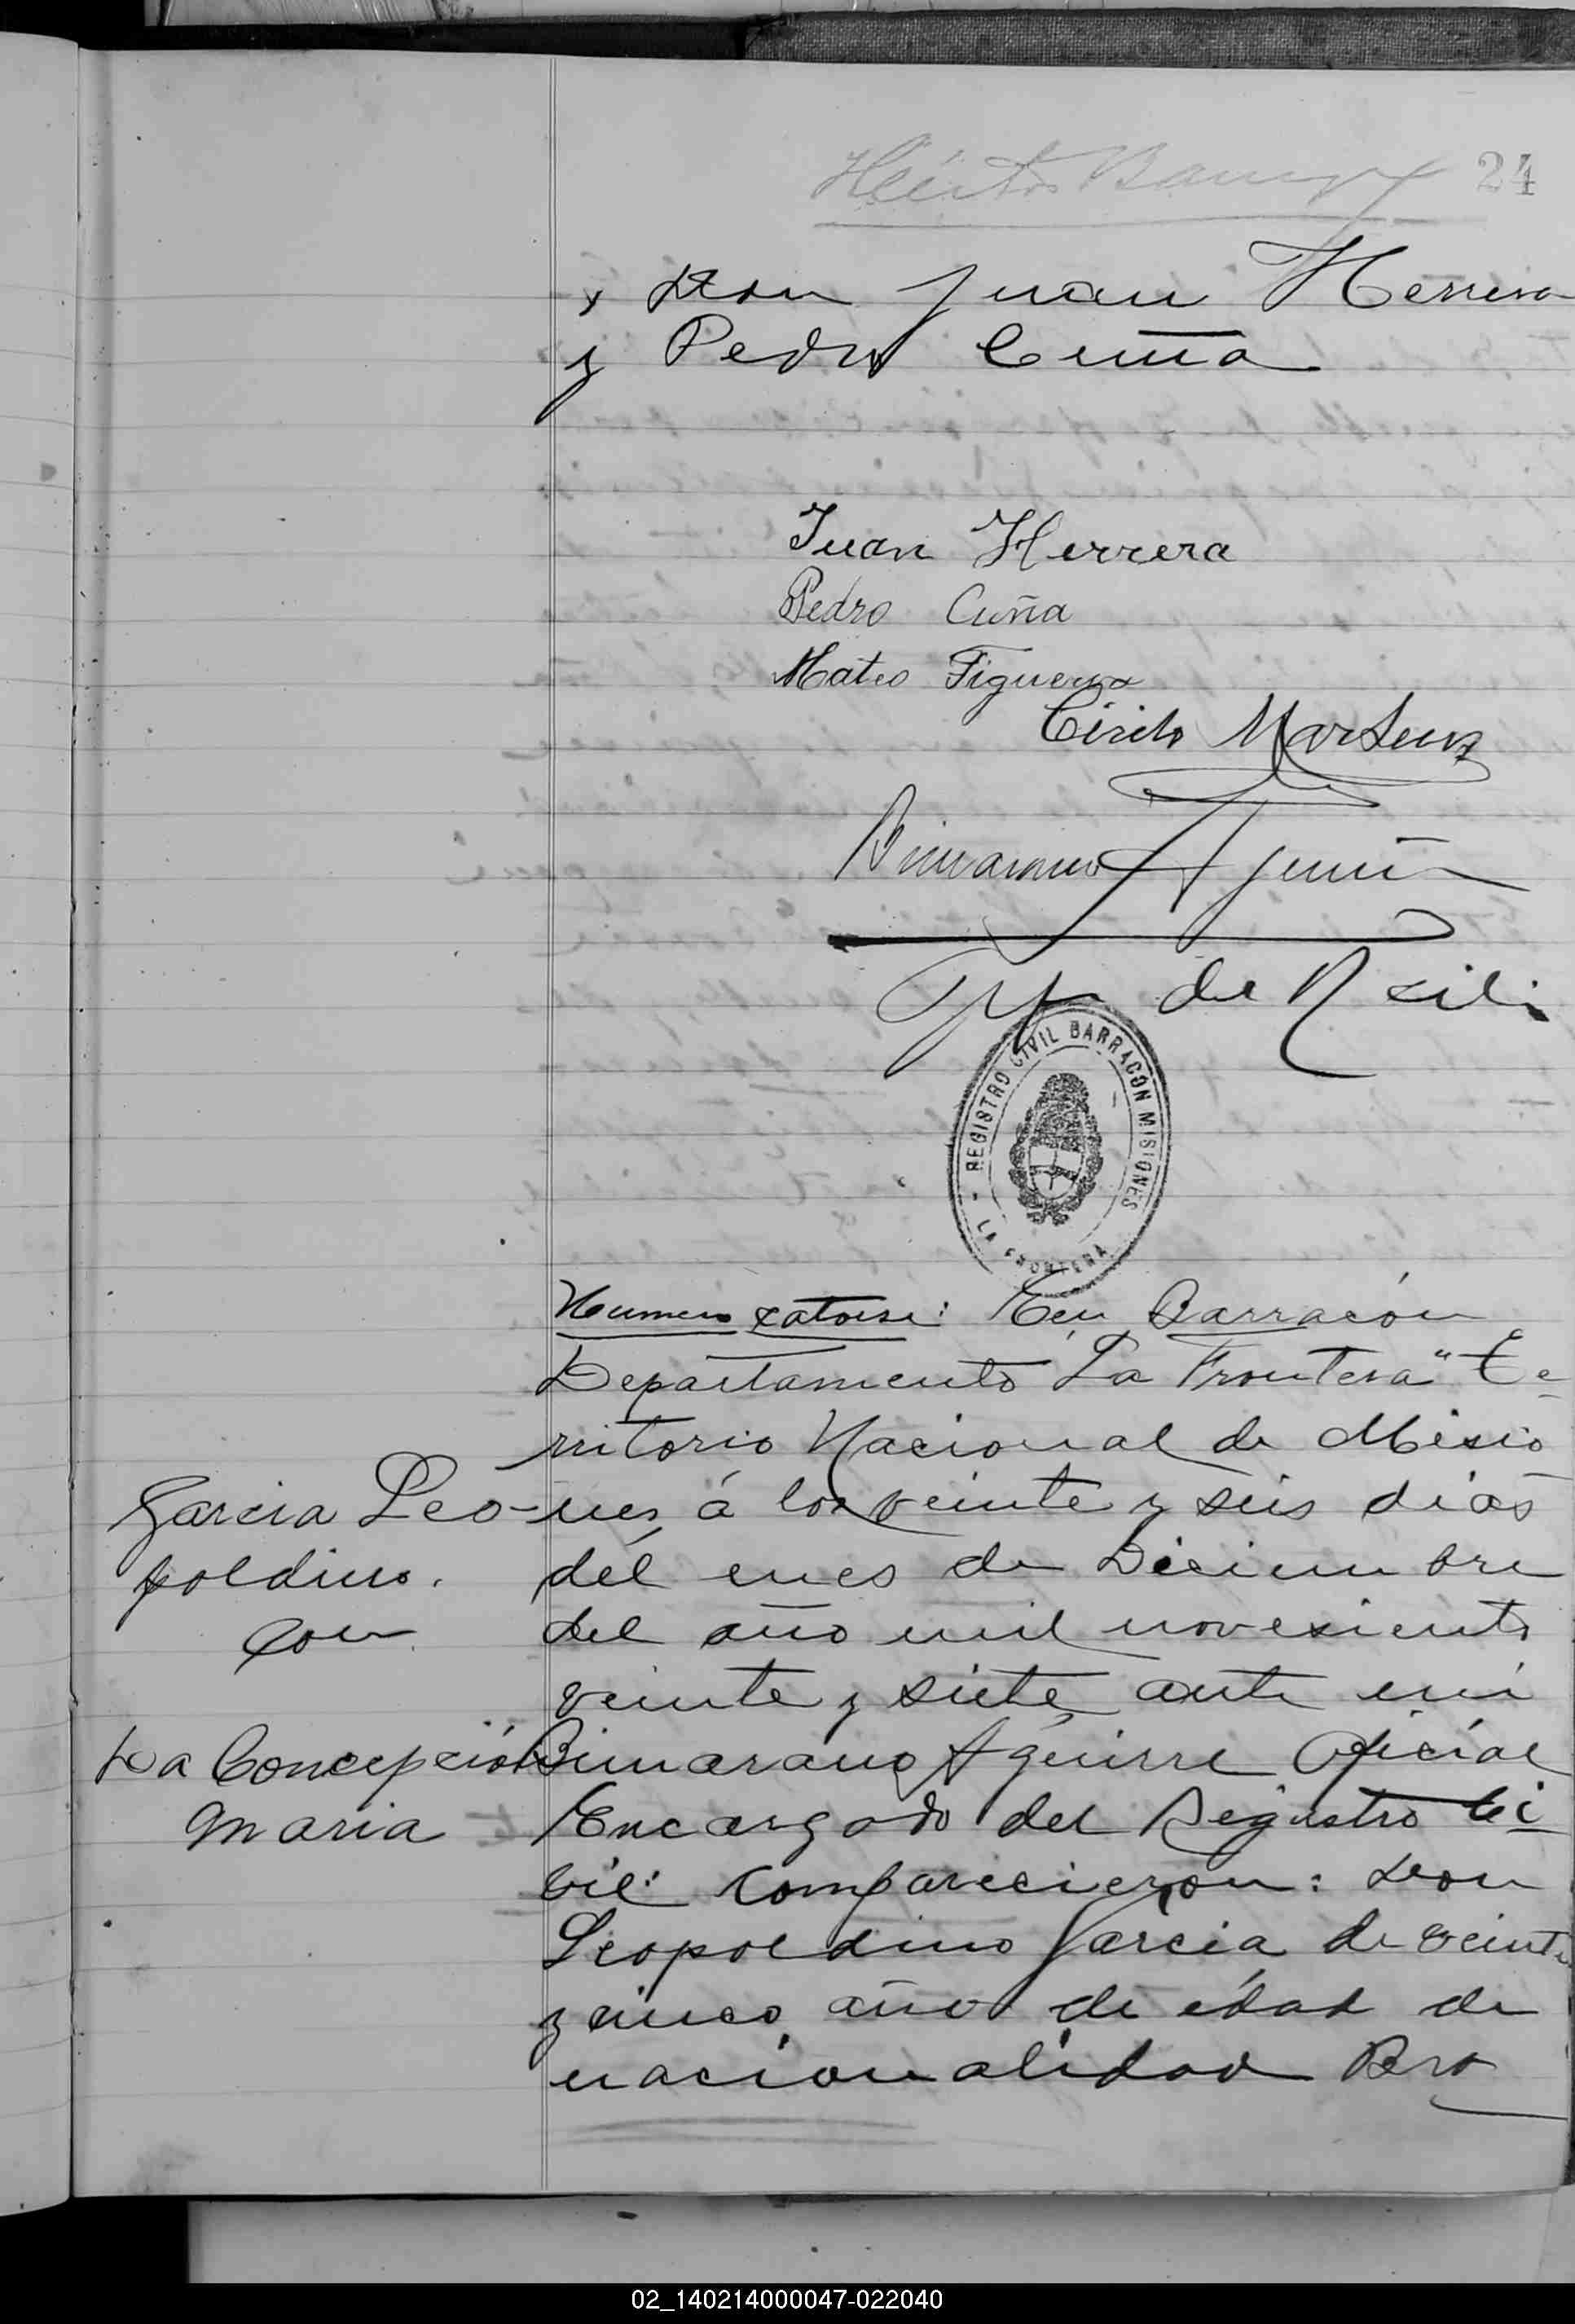 24
y Don Juan Herrera
y Pedro Cuña
Juan Herrera
Pedro Cuña
Mateo Figueroa
Cirilo Martinez
Bimarano Aguirre
de R Civil
REGISTRO CIVIL BARRACÓN MISIONES
LA FRONTERA
Numero catorse: En Barracón
Departamento "La Frontera" Te-
rritorio Nacional de Misio
nes á los veinte y seis dias
del mes de Diciembre
del año mil novesiento
veinte y siete ante mi
Bimarano Aguirre Oficial
Encargado del Registro Ci-
vil: Comparecieron: Don
Leopoldino Garcia de veinte
y cinco año de édad de
nacionalidad Bra
Garcia Leo-
poldino.
con
Da Concepción
Maria
02_140214000047-022040